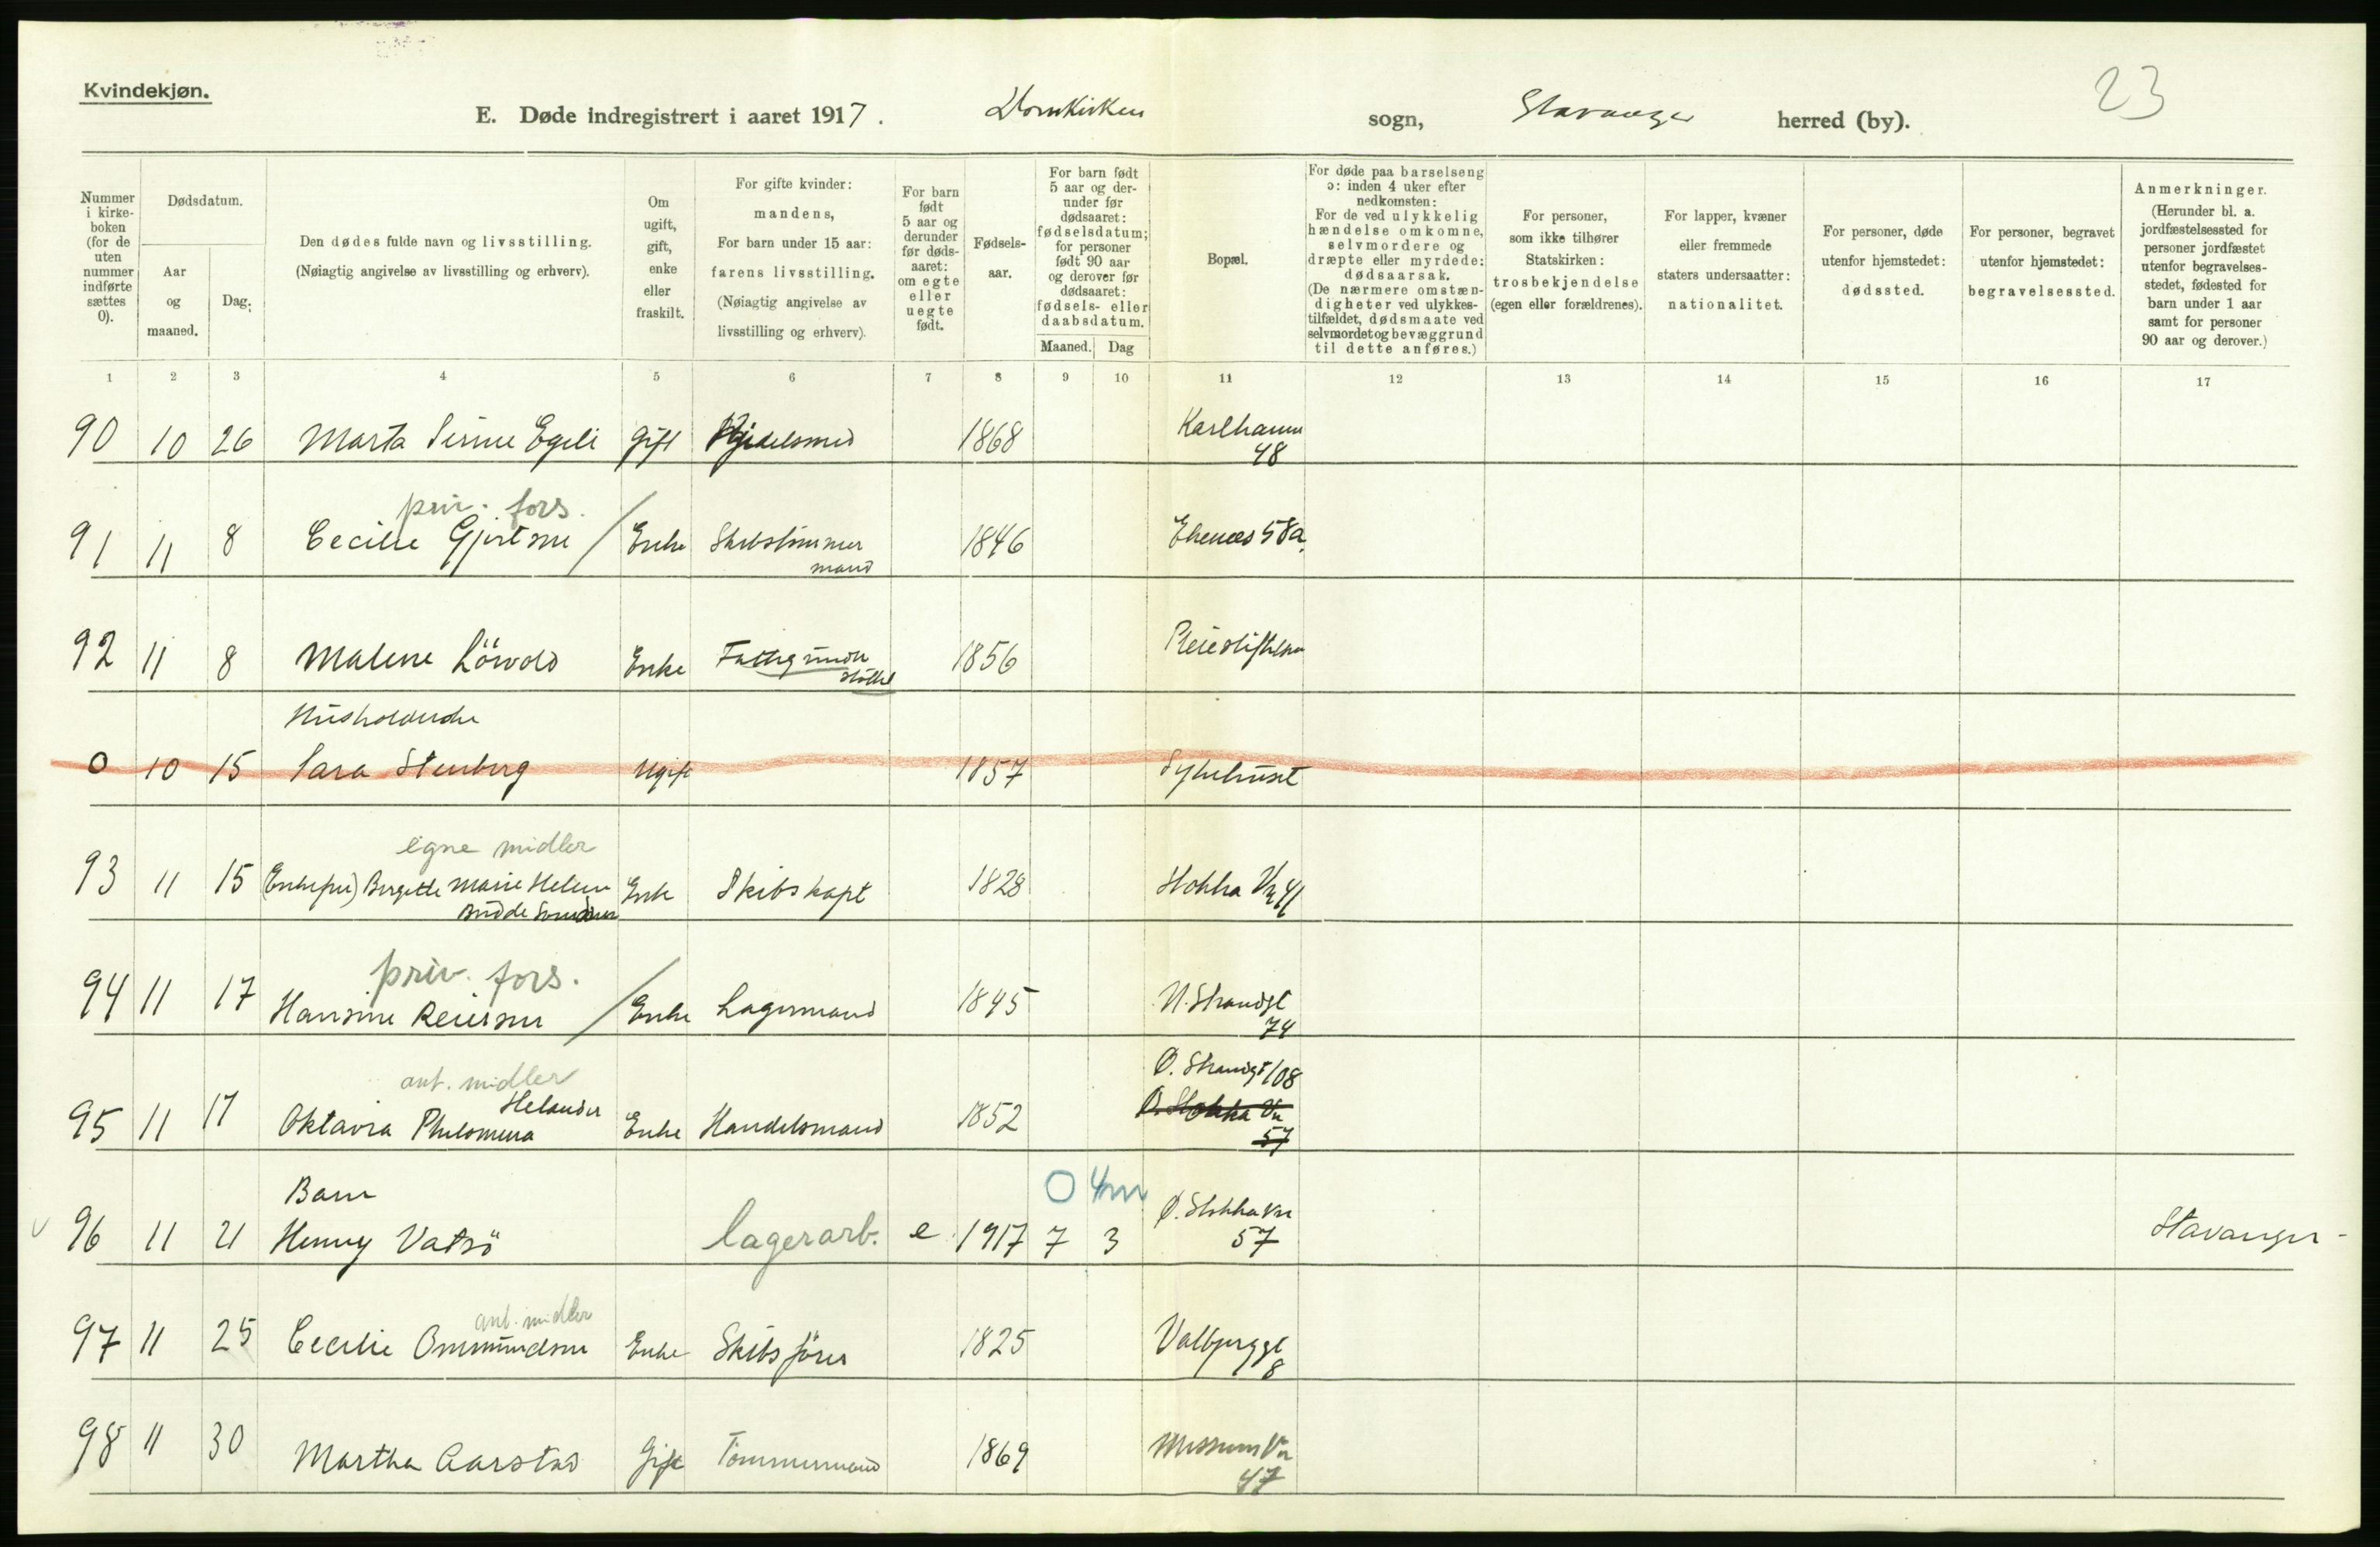 Kvindekjøn.
23
E. Døde indregistrert i aaret 1917. Domkirken sogn, Stavanger herred (by).
Nummer i kirkeboken (for de uten nummer indførte sættes 0).
Dødsdatum.
Aar og maaned.
Dag.
Den dødes fulde navn og livsstilling.
(Nøiagtig angivelse av livsstilling og erhverv).
Om ugift, gift, enke eller fraskilt.
For gifte kvinder: mandens,
For barn under 15 aar: farens livsstilling.
(Nøiagtig angivelse av livsstilling og erhverv).
For barn født 5 aar og derunder før dødsaaret: om egte eller uegte født.
Fødselsaar.
For barn født 5 aar og derunder før dødsaaret: fødselsdatum; for personer født 90 aar og derover før dødsaaret: fødsels- eller daabsdatum.
Maaned. Dag
Bopæl.
For døde paa barselseng ɔ: inden 4 uker efter nedkomsten:
For de ved ulykkelig hændelse omkomne, selvmordere og dræpte eller myrdede: dødsaarsak.
(De nærmere omstændigheter ved ulykkestilfældet, dødsmaate ved selvmordet og bevæggrund til dette anføres.)
For personer, som ikke tilhører Statskirken: trosbekjendelse (egen eller forældrenes).
For lapper, kvæner eller fremmede staters undersaatter: nationalitet.
For personer, døde utenfor hjemstedet: dødssted.
For personer, begravet utenfor hjemstedet: begravelsessted.
Anmerkninger.
(Herunder bl. a. jordfæstelsessted for personer jordfæstet utenfor begravelsesstedet, fødested for barn under 1 aar samt for personer 90 aar og derover.)
1 2 3 4 5 6 7 8 9 10 11 12 13 14 15 16 17
90 10 26 Marta Serine Egeli gift Kjedelsmed 1868 Karlhamm 48
priv. fors.
91 11 8 Cecilie Gjertsen / Enke Skibstømmermand 1846 Ekenæs 58a
92 11 8 Malene Lövold Enke Fattigunderstöttet 1856 Pleiestiftelsen
Husholderske
0 10 15 Sara Stenberg Ugift 1857 Sykehuset
egne midler
93 11 15 (Enkefru) Bergette Marie Helene Budde Enke Skibskapt 1828 Stokka Vn 41
priv. fors.
94 11 17 Hansine Reiersen / Enke Lagermand 1845 N. Strandgt 74
ant. midler
95 11 17 Oktavia Philomena Helander Enke Handelsmand 1852 Ø. Strandgt 108
Ø. Stokka Vn 57
Barn 0 4m
96 11 21 Henny Vatsö lagerarb. e 1917 7 3 Ø. Stokka Vn 57 Stavanger
ant. midler
97 11 25 Cecilie Ommundsen Enke Skibsförer 1825 Valbjerggt 8
98 11 30 Martha Aarstad Gift Tömmermand 1869 Museums Vn 47